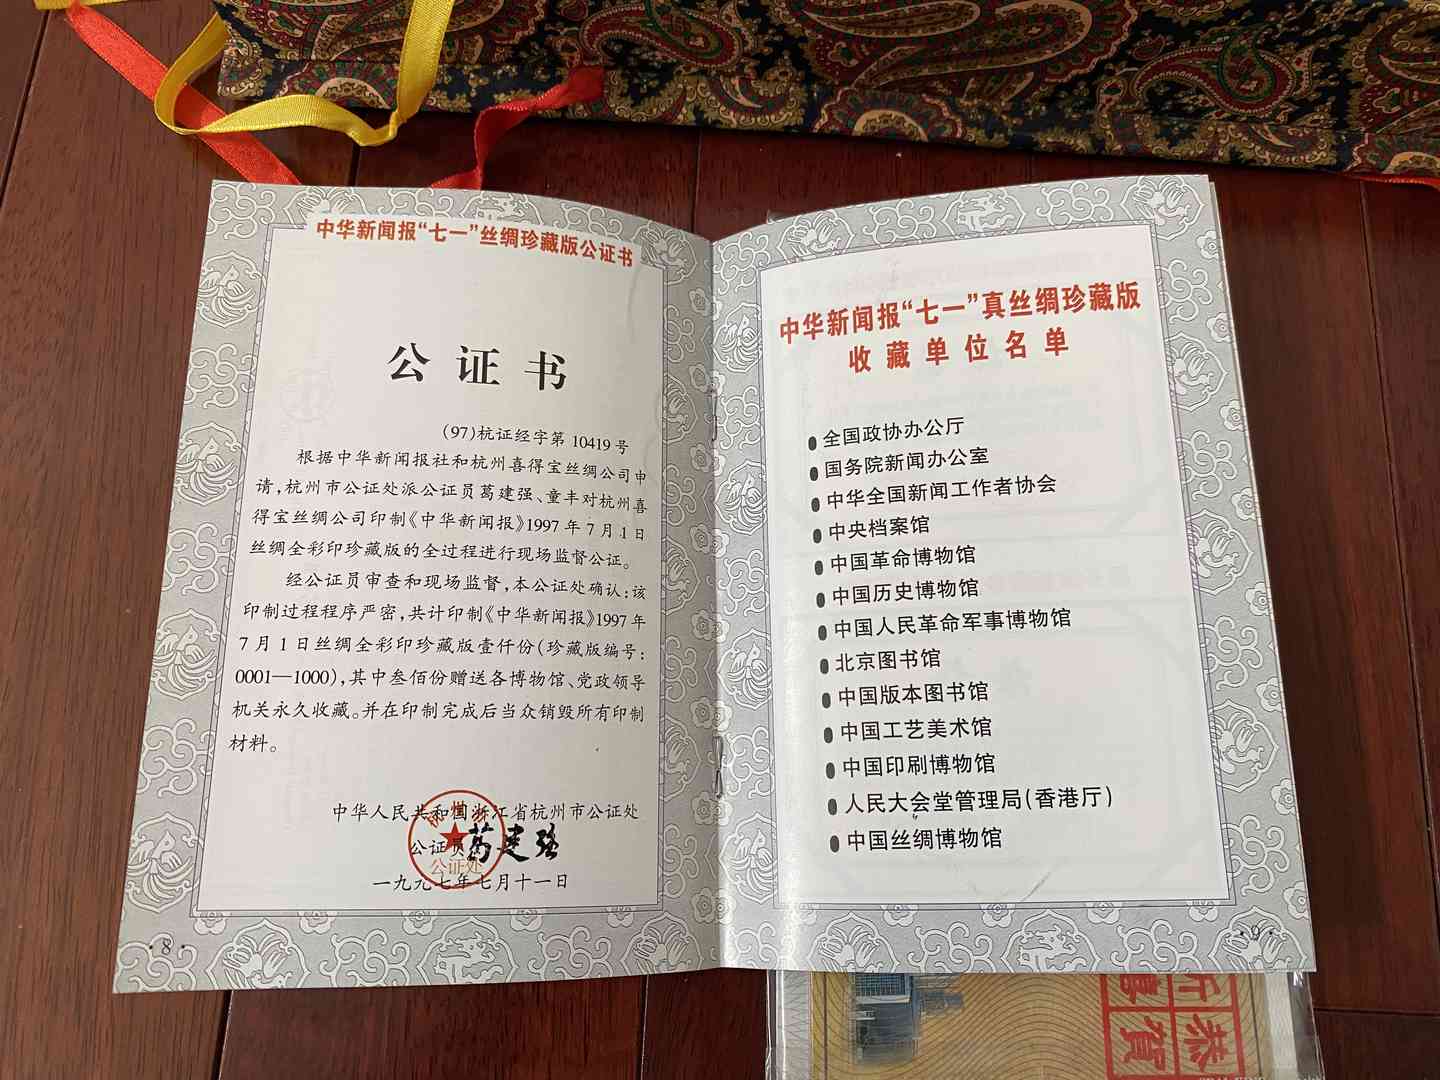 中华新闻报“七一”丝绸珍藏版公证书
公证书
(97)杭证经字第 10419 号
根据中华新闻报社和杭州喜得宝丝绸公司申
请,杭州市公证处派公证员葛建强、童丰对杭州喜
得宝丝绸公司印制《中华新闻报》1997 年 7 月 1 日
丝绸全彩印珍藏版的全过程进行现场监督公证。
经公证员审查和现场监督,本公证处确认:该
印制过程程序严密,共计印制《中华新闻报》1997 年
7 月 1 日丝绸全彩印珍藏版壹仟份(珍藏版编号:
0001—1000),其中叁佰份赠送各博物馆、党政领导
机关永久收藏。并在印制完成后当众销毁所有印制
材料。
中华人民共和国浙江省杭州市公证处
公证员 葛建强
公证处
一九九七年七月十一日
· 8 ·
中华新闻报“七一”真丝绸珍藏版
收藏单位名单
● 全国政协办公厅
● 国务院新闻办公室
● 中华全国新闻工作者协会
● 中央档案馆
● 中国革命博物馆
● 中国历史博物馆
● 中国人民革命军事博物馆
● 北京图书馆
● 中国版本图书馆
● 中国工艺美术馆
● 中国印刷博物馆
● 人民大会堂管理局(香港厅)
● 中国丝绸博物馆
· 9 ·
恭賀
新禧